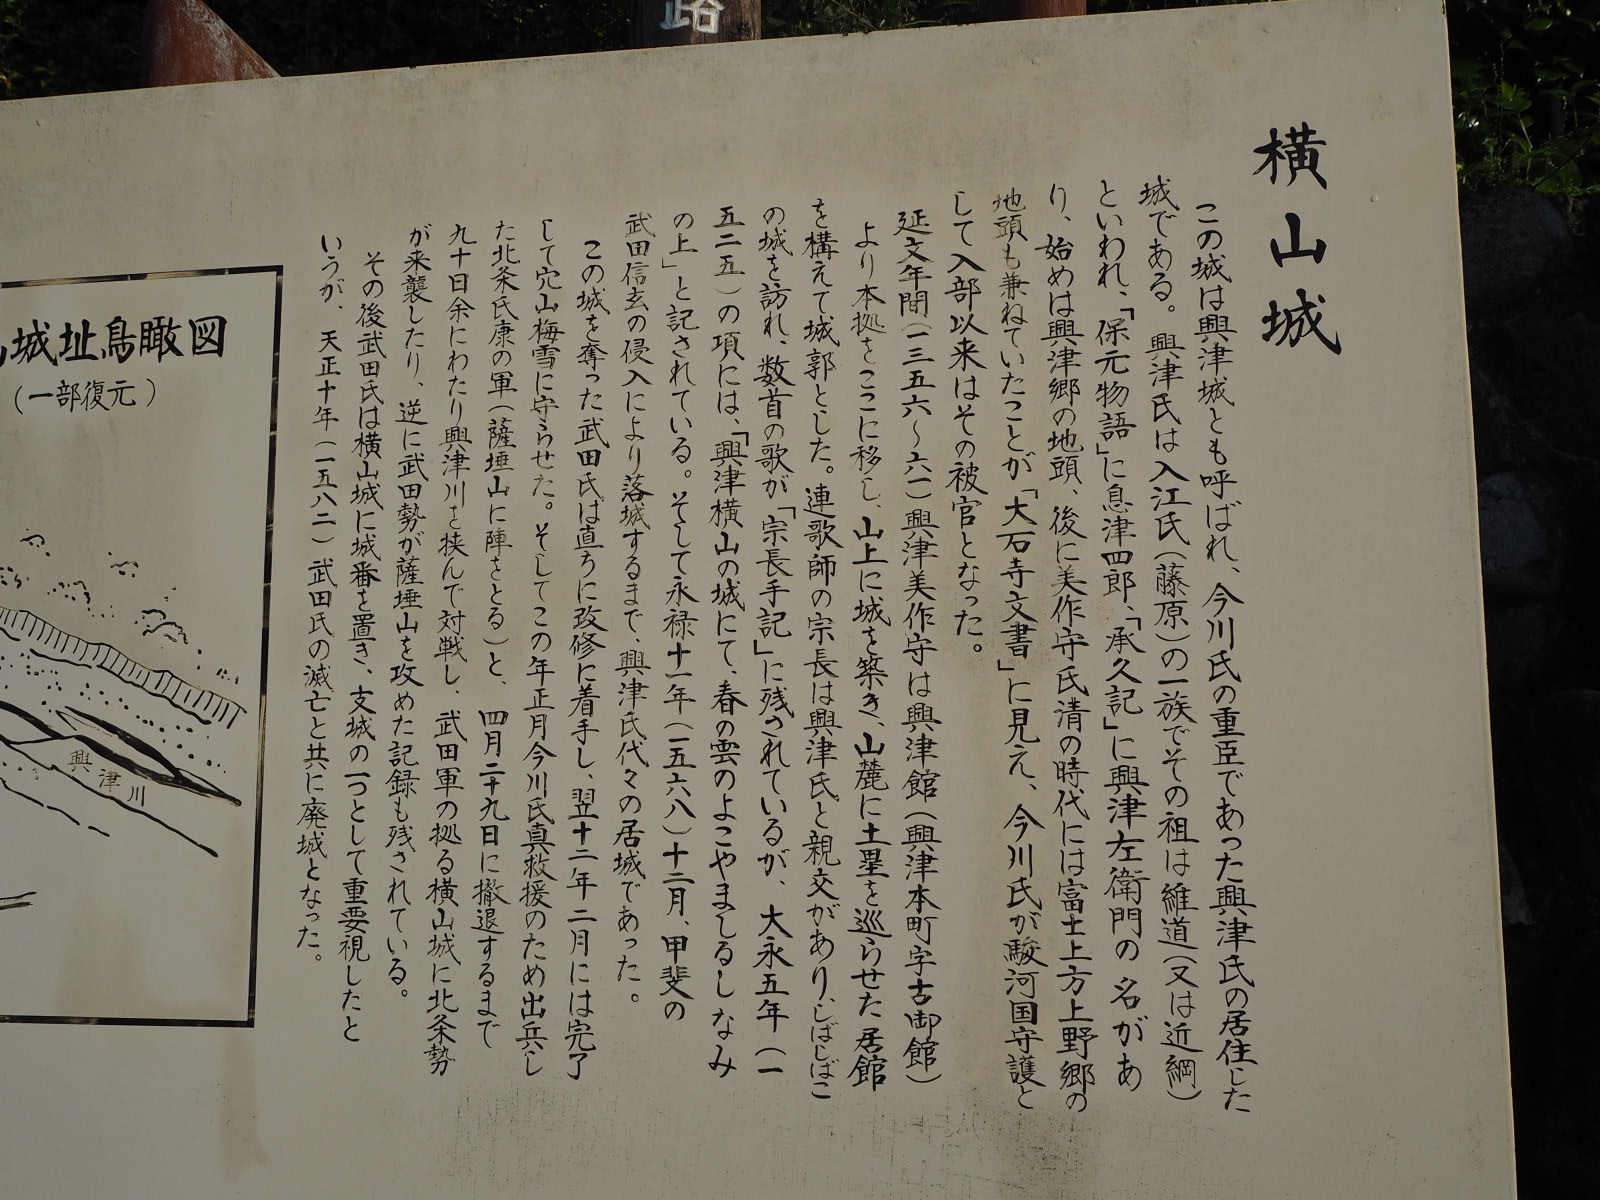 路
横山城
この城は興津城とも呼ばれ、今川氏の重臣であった興津氏の居住した
城である。興津氏は入江氏(藤原)の一族でその祖は維道(又は近綱)
といわれ、「保元物語」に息津四郎、「承久記」に興津左衛門の名があ
り、始めは興津郷の地頭、後に美作守氏清の時代には富士上方上野郷の
地頭も兼ねていたことが「大石寺文書」に見え、今川氏が駿河国守護と
して入部以来はその被官となった。
延文年間(一三五六〜六一)興津美作守は興津館(興津本町字古御館)
より本拠をここに移し、山上に城を築き、山麓に土塁を巡らせた居館
を構えて城郭とした。連歌師の宗長は興津氏と親交がありしばしばこ
の城を訪れ、数首の歌が「宗長手記」に残されているが、大永五年(一
五二五)の項には、「興津横山の城にて、春の雲のよこやましるしなみ
の上」と記されている。そして永禄十一年(一五六八)十二月、甲斐の
武田信玄の侵入により落城するまで、興津氏代々の居城であった。
この城を奪った武田氏は直ちに改修に着手し、翌十二年二月には完了
して穴山梅雪に守らせた。そしてこの年正月今川氏真救援のため出兵し
た北条氏康の軍(薩埵山に陣をとる)と、四月二十九日に撤退するまで
九十日余にわたり興津川を挟んで対戦し、武田軍の拠る横山城に北条勢
が来襲したり、逆に武田勢が薩埵山を攻めた記録も残されている。
その後武田氏は横山城に城番を置き、支城の一つとして重要視したと
いうが、天正十年(一五八二)武田氏の滅亡と共に廃城となった。
城址鳥瞰図
(一部復元)
興津川